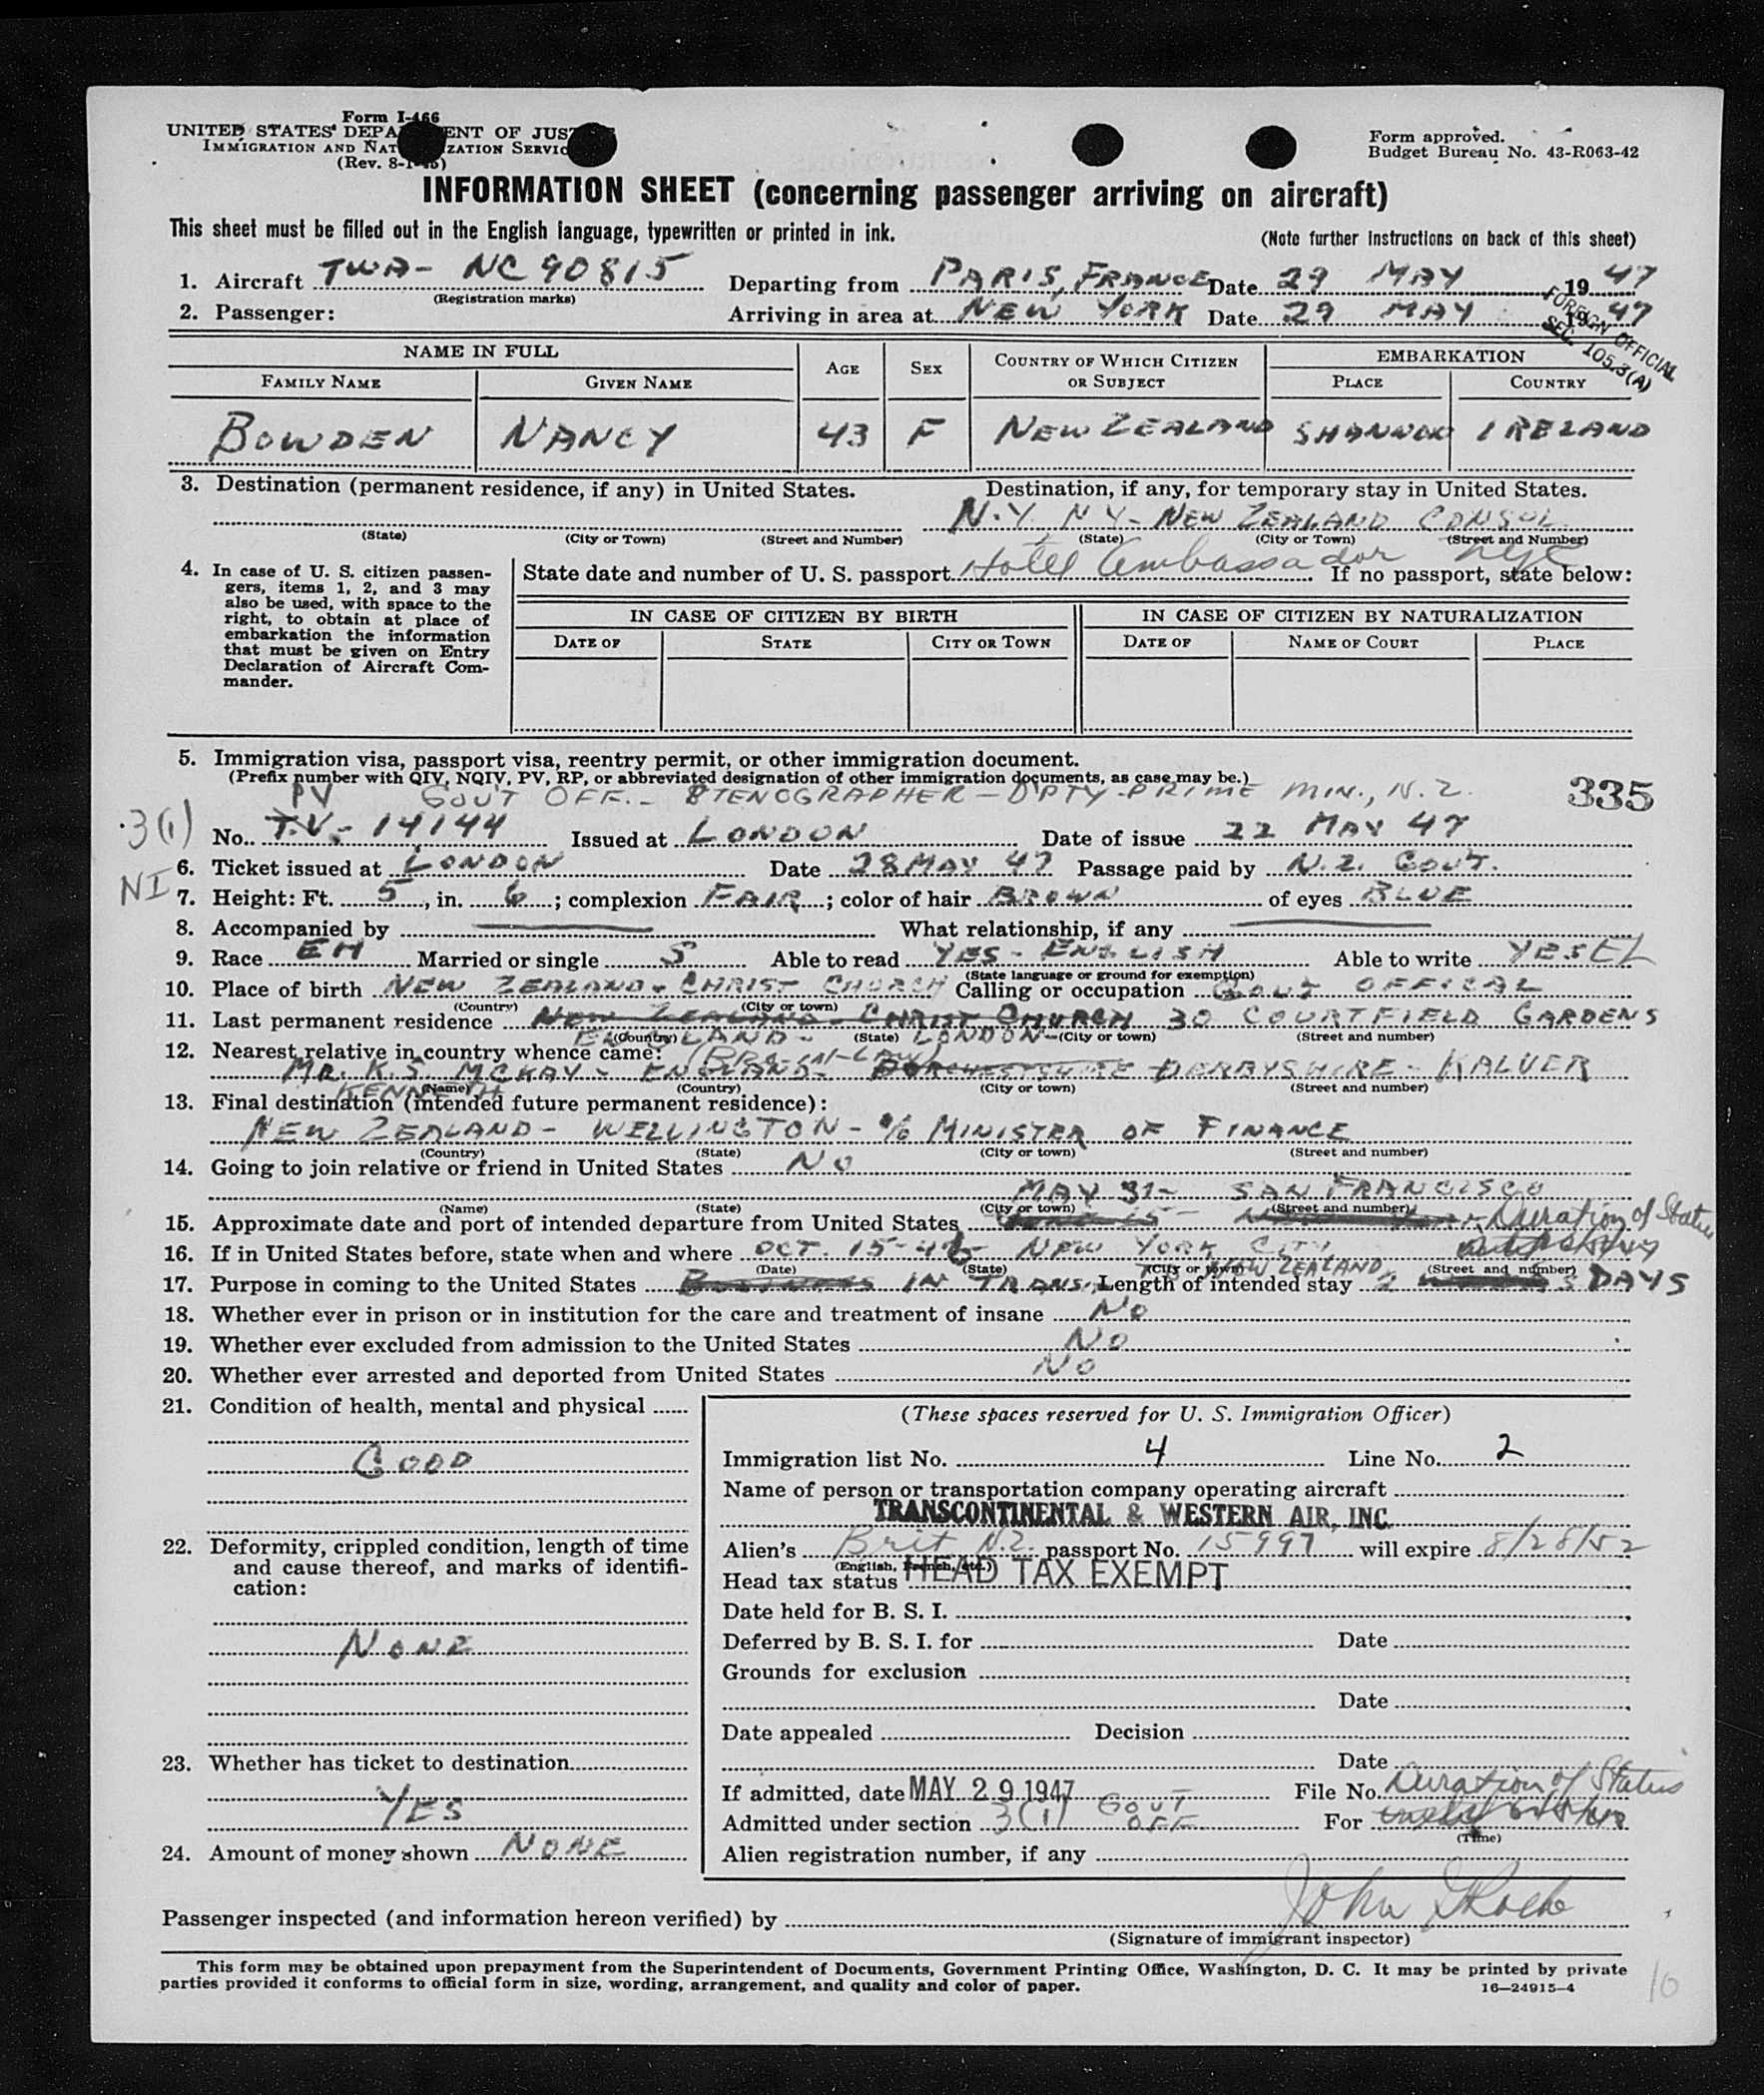 Form I-466
UNITED STATES DEPA ENT OF JUST
IMMIGRATION AND NAT ZATION SERVIC
(Rev. 8-1-45)
Form approved.
Budget Bureau No. 43-R063-42
INFORMATION SHEET (concerning passenger arriving on aircraft)
This sheet must be filled out in the English language, typewritten or printed in ink.
(Note further instructions on back of this sheet)
1. Aircraft TWA - NC 90815 Departing from PARIS, FRANCE Date 29 MAY 1947
(Registration marks)
2. Passenger: Arriving in area at NEW YORK Date 29 MAY 1947
FOREIGN OFFICIAL
SEC. 105.3(A)
NAME IN FULL
FAMILY NAME GIVEN NAME AGE SEX COUNTRY OF WHICH CITIZEN OR SUBJECT EMBARKATION
PLACE COUNTRY
BOWDEN NANCY 43 F NEW ZEALAND SHANNON IRELAND
3. Destination (permanent residence, if any) in United States. Destination, if any, for temporary stay in United States.
N.Y. NY - NEW ZEALAND CONSUL
(State) (City or Town) (Street and Number) (State) (City or Town) (Street and Number)
Hotel Ambassador NYC
4. In case of U. S. citizen passen-
gers, items 1, 2, and 3 may
also be used, with space to the
right, to obtain at place of
embarkation the information
that must be given on Entry
Declaration of Aircraft Com-
mander.
State date and number of U. S. passport If no passport, state below:
IN CASE OF CITIZEN BY BIRTH IN CASE OF CITIZEN BY NATURALIZATION
DATE OF STATE CITY OR TOWN DATE OF NAME OF COURT PLACE
5. Immigration visa, passport visa, reentry permit, or other immigration document.
(Prefix number with QIV, NQIV, PV, RP, or abbreviated designation of other immigration documents, as case may be.)
PV GOVT OFF. - STENOGRAPHER - D'PTY PRIME MIN., N.Z. 335
3(1)
No. T.V. - 14144 Issued at LONDON Date of issue 22 MAY 47
6. Ticket issued at LONDON Date 28 MAY 47 Passage paid by N.Z. GOVT.
NI
7. Height: Ft. 5, in. 6; complexion FAIR; color of hair BROWN of eyes BLUE
8. Accompanied by What relationship, if any
9. Race EH Married or single S Able to read YES - ENGLISH Able to write YES EL
(State language or ground for exemption)
10. Place of birth NEW ZEALAND - CHRIST CHURCH Calling or occupation GOVT OFFICAL
(Country) (City or town)
11. Last permanent residence NEW ZEALAND - CHRIST CHURCH 30 COURTFIELD GARDENS
ENGLAND - LONDON -
(Country) (State) (City or town) (Street and number)
12. Nearest relative in country whence came: (BRO-IN-LAW)
MR. K.S. MCKAY - ENGLAND - DERBYSHIRE - KALVER
KENNETH
(Name) (Country) (City or town) (Street and number)
13. Final destination (intended future permanent residence):
NEW ZEALAND - WELLINGTON - c/o MINISTER OF FINANCE
(Country) (State) (City or town) (Street and number)
14. Going to join relative or friend in United States NO
MAY 31 - SAN FRANCISCO
(Name) (State) (City or town) (Street and number)
15. Approximate date and port of intended departure from United States Duration of Status
16. If in United States before, state when and where OCT. 15-46 - NEW YORK CITY
(Date) (State) (City or town) (Street and number)
TO NEW ZEALAND
17. Purpose in coming to the United States BUSINESS IN TRANSIT Length of intended stay 3 DAYS
18. Whether ever in prison or in institution for the care and treatment of insane NO
19. Whether ever excluded from admission to the United States NO
20. Whether ever arrested and deported from United States NO
21. Condition of health, mental and physical
GOOD
22. Deformity, crippled condition, length of time
and cause thereof, and marks of identifi-
cation:
NONE
23. Whether has ticket to destination
YES
24. Amount of money shown NONE
(These spaces reserved for U. S. Immigration Officer)
Immigration list No. 4 Line No. 2
Name of person or transportation company operating aircraft
TRANSCONTINENTAL & WESTERN AIR, INC.
Alien's Brit N.Z. passport No. 15997 will expire 8/28/52
(English, French, etc.)
Head tax status HEAD TAX EXEMPT
Date held for B. S. I.
Deferred by B. S. I. for Date
Grounds for exclusion
Date
Date appealed Decision
Date
If admitted, date MAY 29 1947 File No. Duration of Status
Admitted under section 3(1) GOVT OFF. For
(Time)
Alien registration number, if any
Passenger inspected (and information hereon verified) by John
(Signature of immigrant inspector)
This form may be obtained upon prepayment from the Superintendent of Documents, Government Printing Office, Washington, D. C. It may be printed by private
parties provided it conforms to official form in size, wording, arrangement, and quality and color of paper.
16—24915-4
10